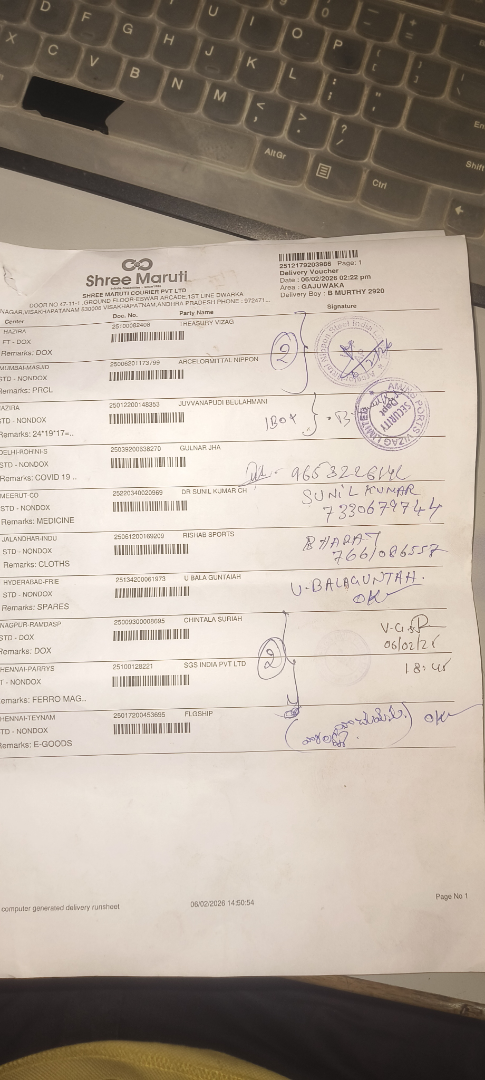 Shree Maruti
SHREE MARUTI COURIER PVT LTD
DOOR NO 47-11-1, GROUND FLOOR-ESWAR ARCADE,1ST LINE DWARKA
NAGAR,VISAKHAPATANAM 530006 VISAKHAPATNAM,ANDHRA PRADESH PHONE : 972471
2512179203986 Page: 1
Delivery Voucher
Date : 06/02/2026 02:22 pm
Area : GAJUWAKA
Delivery Boy : B MURTHY 2920
Center Doc. No. Party Name Signature
HAZIRA 25100082408 TREASURY VIZAG
FT - DOX
Remarks: DOX
2
MUMBAI-MASJID 25006201173799 ARCELORMITTAL NIPPON
STD - NONDOX
Remarks: PRCL
HAZIRA 25012200148353 JUVVANAPUDI BEULAHMANI
STD - NONDOX
Remarks: 24*19*17=..
1BOX
SECURITY
DELHI-ROHINI-S 25039200538270 GULNAR JHA
STD - NONDOX
Remarks: COVID 19 ..
MEERUT-CO 25220340020969 DR SUNIL KUMAR CH
STD - NONDOX
Remarks: MEDICINE
SUNIL KUMAR
7330679744
JALANDHAR-INDU 25061200169209 RISHAB SPORTS
STD - NONDOX
Remarks: CLOTHS
BHARAT
HYDERABAD-FRIE 25134200061973 U BALA GUNTAIAH
STD - NONDOX
Remarks: SPARES
U.BALAGUNTAH.
OK
NAGPUR-RAMDASP 25009300008695 CHINTALA SURIAH
STD - DOX
Remarks: DOX
06/02/26
18:45
2
CHENNAI-PARRYS 25100128221 SGS INDIA PVT LTD
T - NONDOX
Remarks: FERRO MAG..
CHENNAI-TEYNAM 25017200453695 FLGSHIP
STD - NONDOX
Remarks: E-GOODS
OK
computer generated delivery runsheet 06/02/2026 14:50:54 Page No 1